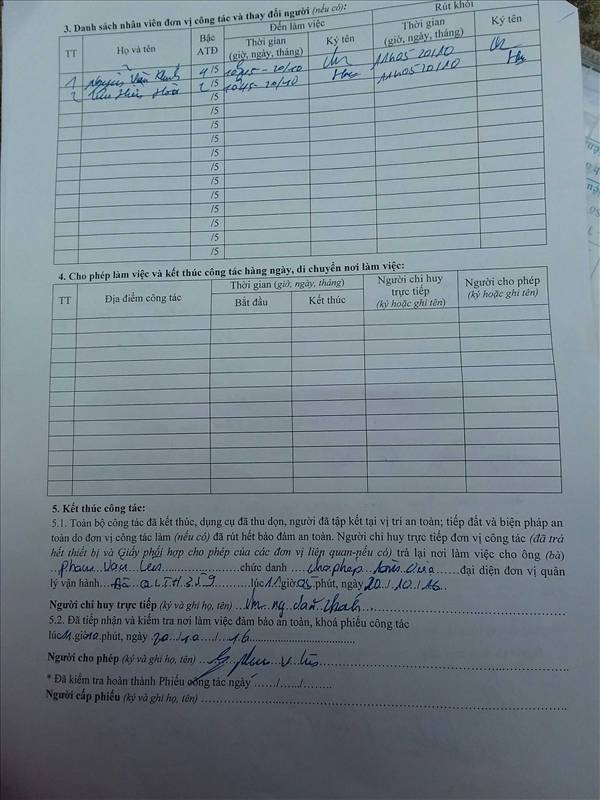 3. Danh sách nhân viên đơn vị công tác và thay đổi người (nếu có):
TT Họ và tên Bậc ATĐ Đến làm việc Rút khỏi
Thời gian (giờ, ngày, tháng) Ký tên Thời gian (giờ, ngày, tháng) Ký tên
1 Nguyễn Văn 4/5 10h45-20/10 11h05 20/10
2 2/5 10h45-20/10 11h05 20/10
/5
/5
/5
/5
/5
/5
/5
/5
/5
/5
/5
/5
4. Cho phép làm việc và kết thúc công tác hàng ngày, di chuyển nơi làm việc:
TT Địa điểm công tác Thời gian (giờ, ngày, tháng) Người chỉ huy trực tiếp (ký hoặc ghi tên) Người cho phép (ký hoặc ghi tên)
Bắt đầu Kết thúc
5. Kết thúc công tác:
5.1. Toàn bộ công tác đã kết thúc, dụng cụ đã thu dọn, người đã tập kết tại vị trí an toàn; tiếp đất và biện pháp an
toàn do đơn vị công tác làm (nếu có) đã rút hết bảo đảm an toàn. Người chỉ huy trực tiếp đơn vị công tác (đã trả
hết thiết bị và Giấy phối hợp cho phép của các đơn vị liên quan-nếu có) trả lại nơi làm việc cho ông (bà)
Phạm Văn chức danh cho phép đại diện đơn vị quản
lý vận hành lúc 11 giờ 05 phút, ngày 20/10/16
Người chỉ huy trực tiếp (ký và ghi họ, tên)
5.2. Đã tiếp nhận và kiểm tra nơi làm việc đảm bảo an toàn, khoá phiếu công tác
lúc 11 giờ 10 phút, ngày 20/10/16
Người cho phép (ký và ghi họ, tên)
* Đã kiểm tra hoàn thành Phiếu công tác ngày ....../....../........
Người cấp phiếu (ký và ghi họ, tên)